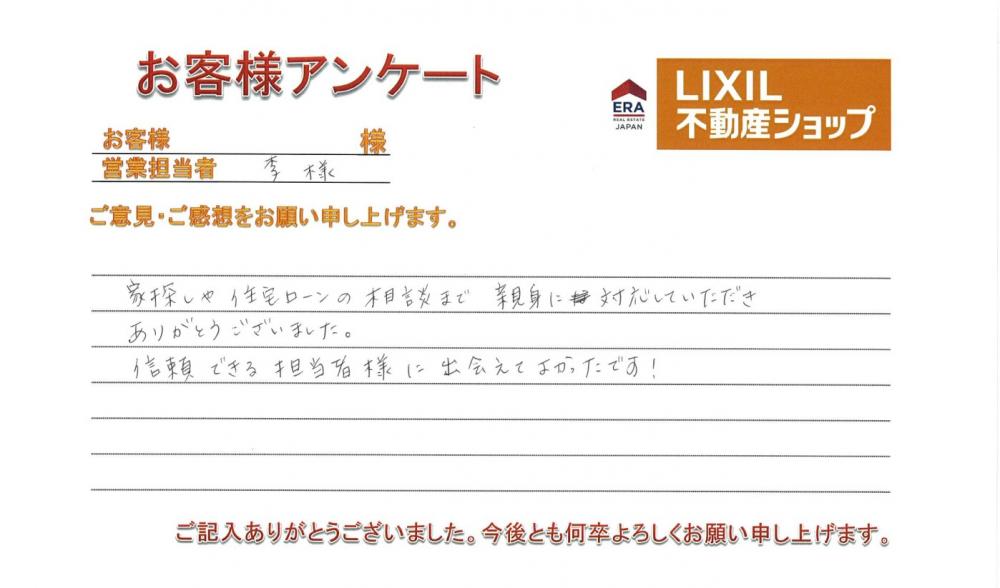 お客様アンケート
ERA
REAL ESTATE
JAPAN
LIXIL
不動産ショップ
お客様 様
営業担当者 李様
ご意見・ご感想をお願い申し上げます。
家探しや住宅ローンの相談まで 親身に対応していただき
ありがとうございました。
信頼できる担当者様に出会えてよかったです!
ご記入ありがとうございました。今後とも何卒よろしくお願い申し上げます。